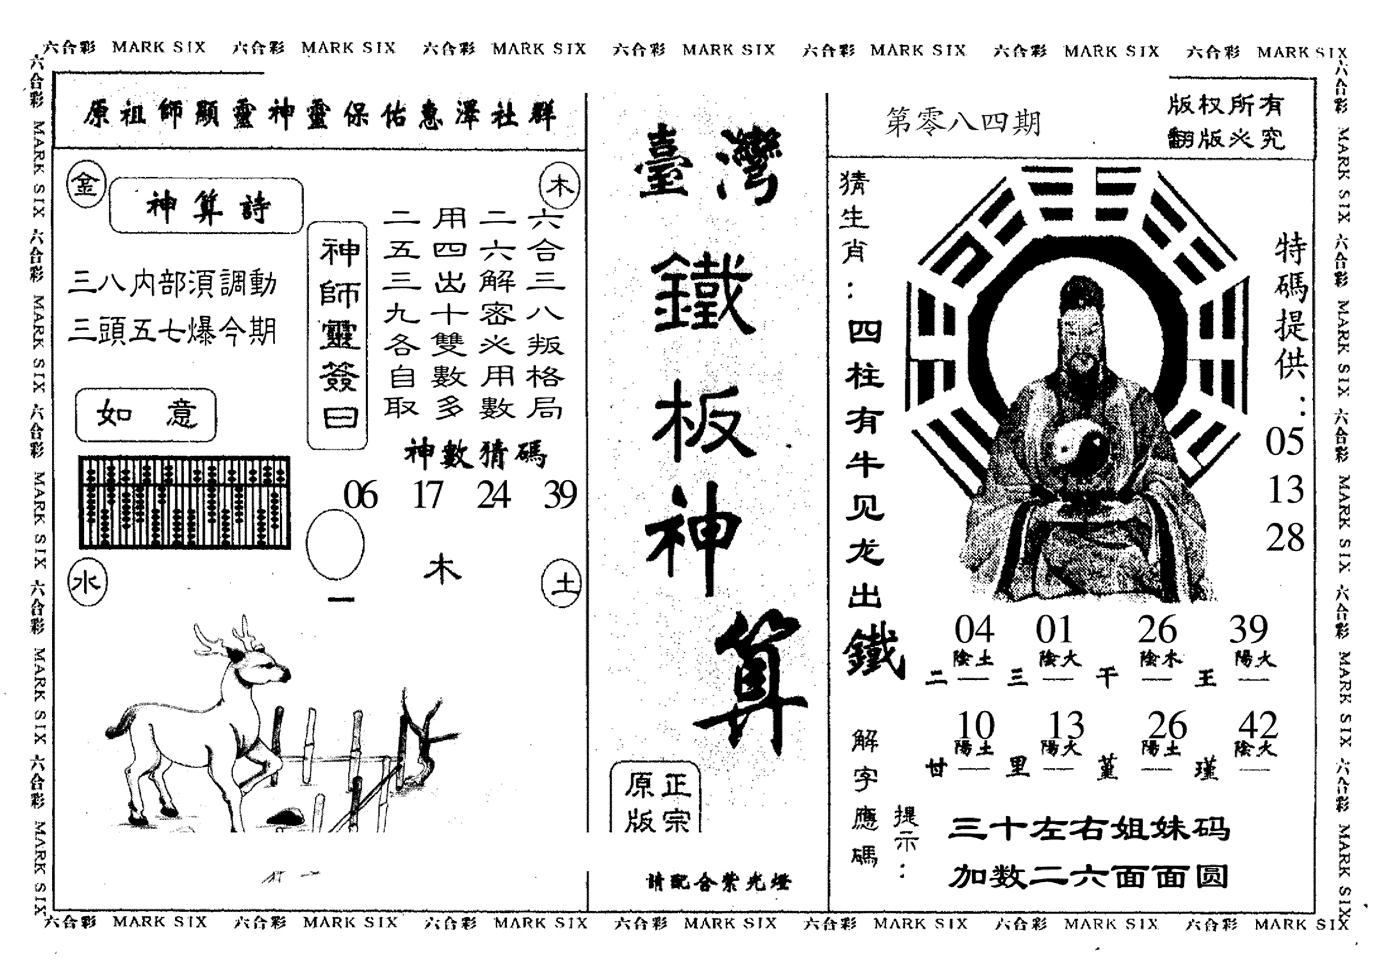 六合彩 MARK SIX 六合彩 MARK SIX 六合彩 MARK SIX 六合彩 MARK SIX 六合彩 MARK SIX 六合彩 MARK SIX 六合彩 MARK SIX
六合彩 MARK SIX 六合彩 MARK SIX 六合彩 MARK SIX 六合彩 MARK SIX 六合彩 MARK SIX
原祖師顯靈神靈保佑惠澤社群
金
木
神算詩
三八内部湏調動
三頭五七爆今期
如意
神師靈簽曰
六合三八叛格局
二六解密必用數
用四出十雙數多
二五三九各自取
神數猜碼
06 17 24 39
木
一
水
土
臺灣
鐵
板
神
算
正宗
原版
請配合紫光燈
第零八四期
版权所有
翻版必究
猜生肖：四柱有牛见龙出鐵
特碼提供：
05
13
28
04 01 26 39
陰土 陰火 陰木 陽火
二 三 干 王
10 13 26 42
陽土 陽火 陽土 陰火
甘 里 堇 瑾
解字應碼
提示：
三十左右姐妹码
加数二六面面圆
六合彩 MARK SIX 六合彩 MARK SIX 六合彩 MARK SIX 六合彩 MARK SIX 六合彩 MARK SIX
六合彩 MARK SIX 六合彩 MARK SIX 六合彩 MARK SIX 六合彩 MARK SIX 六合彩 MARK SIX 六合彩 MARK SIX 六合彩 MARK SIX